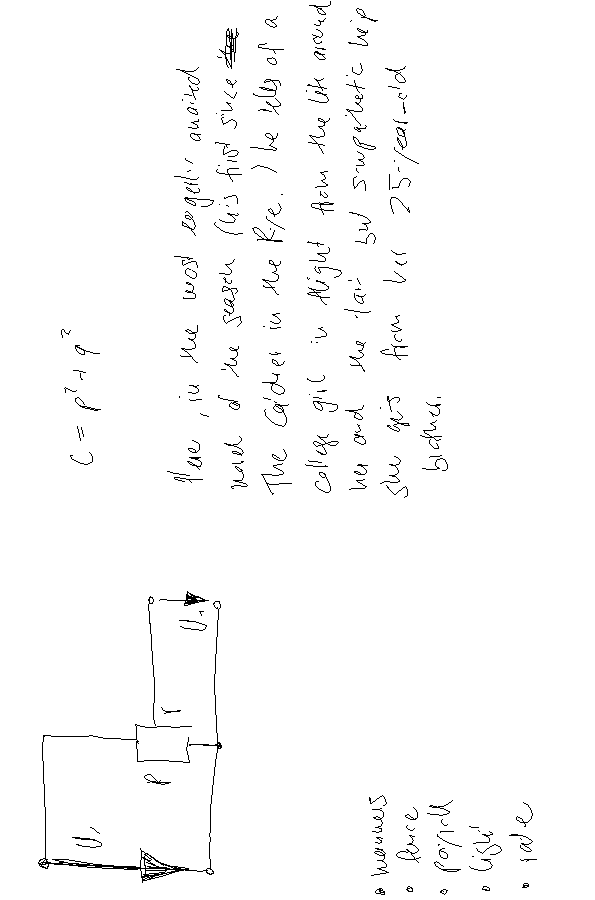 C = p² + q²
Here, in the most eagerly awaited
novel of the season (his first since
The Catcher in the Rye.) he tells of a
college girl in flight from the life around
her and the tart but sympathetic help
she gets from her 25-year-old
brother.
U₁
R
r
U₁
• manners
• fence
• payroll
• light